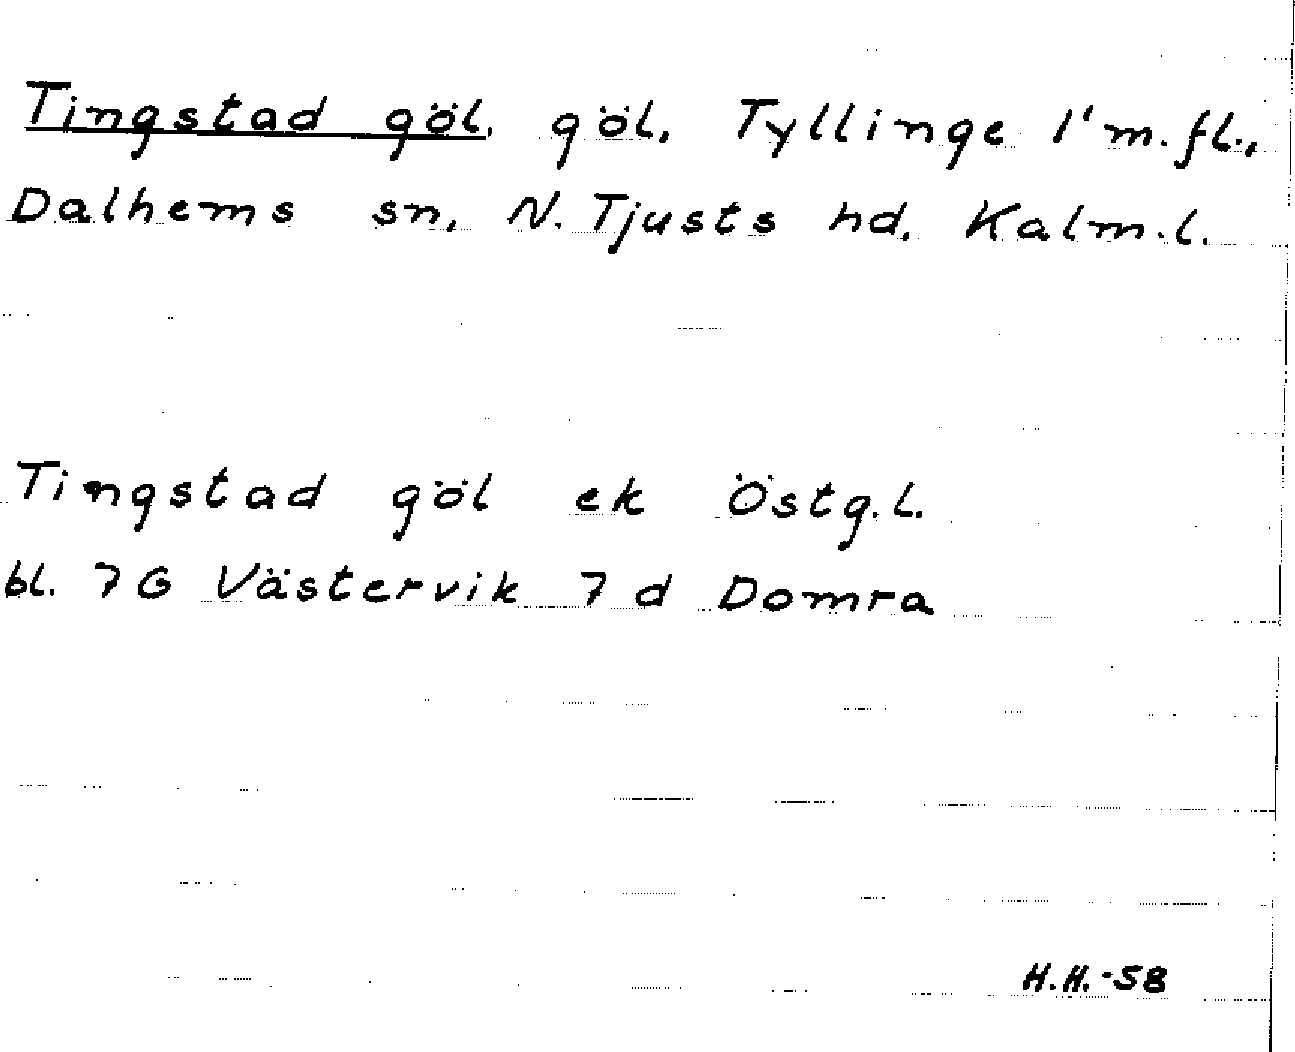 Tingstad göl, göl, Tyllinge 1' m.fl.,
Dalhems sn, N. Tjusts hd, Kalm.l.
Tingstad göl ek Östg.l.
bl. 7G Västervik 7 d Domra
H.H. -58